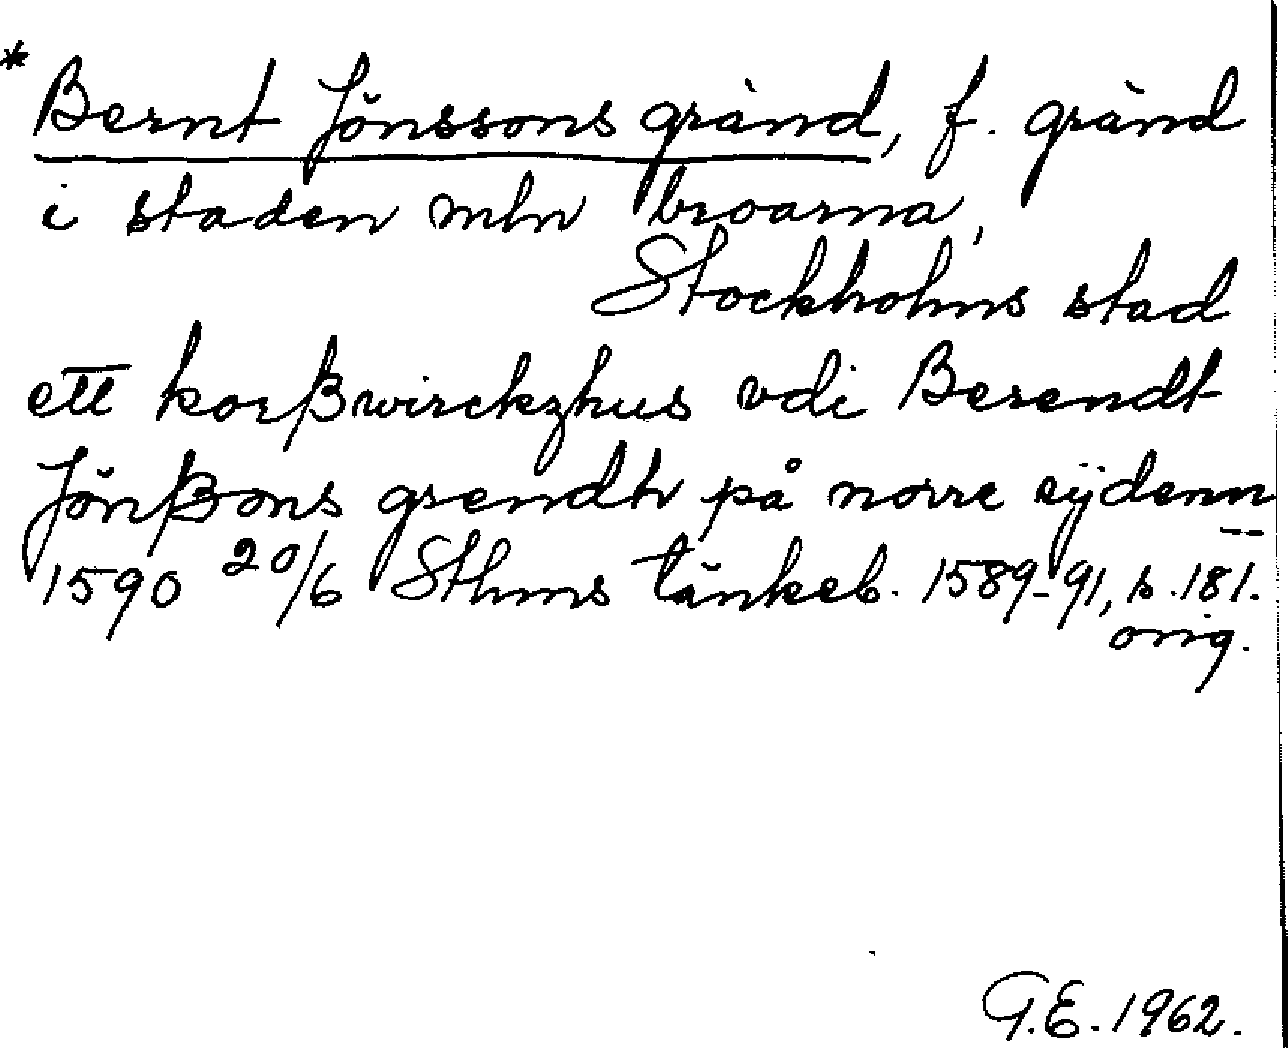 * Bernt Jönssons gränd, f. gränd
i staden mln broarna,
Stockholms stad
ett korßwirckzhus vdi Berendt
Jönßons grendh på norre sijdenn
--
1590 20/6 Sthms tänkeb. 1589-91, s. 181.
orig.
G.E. 1962.